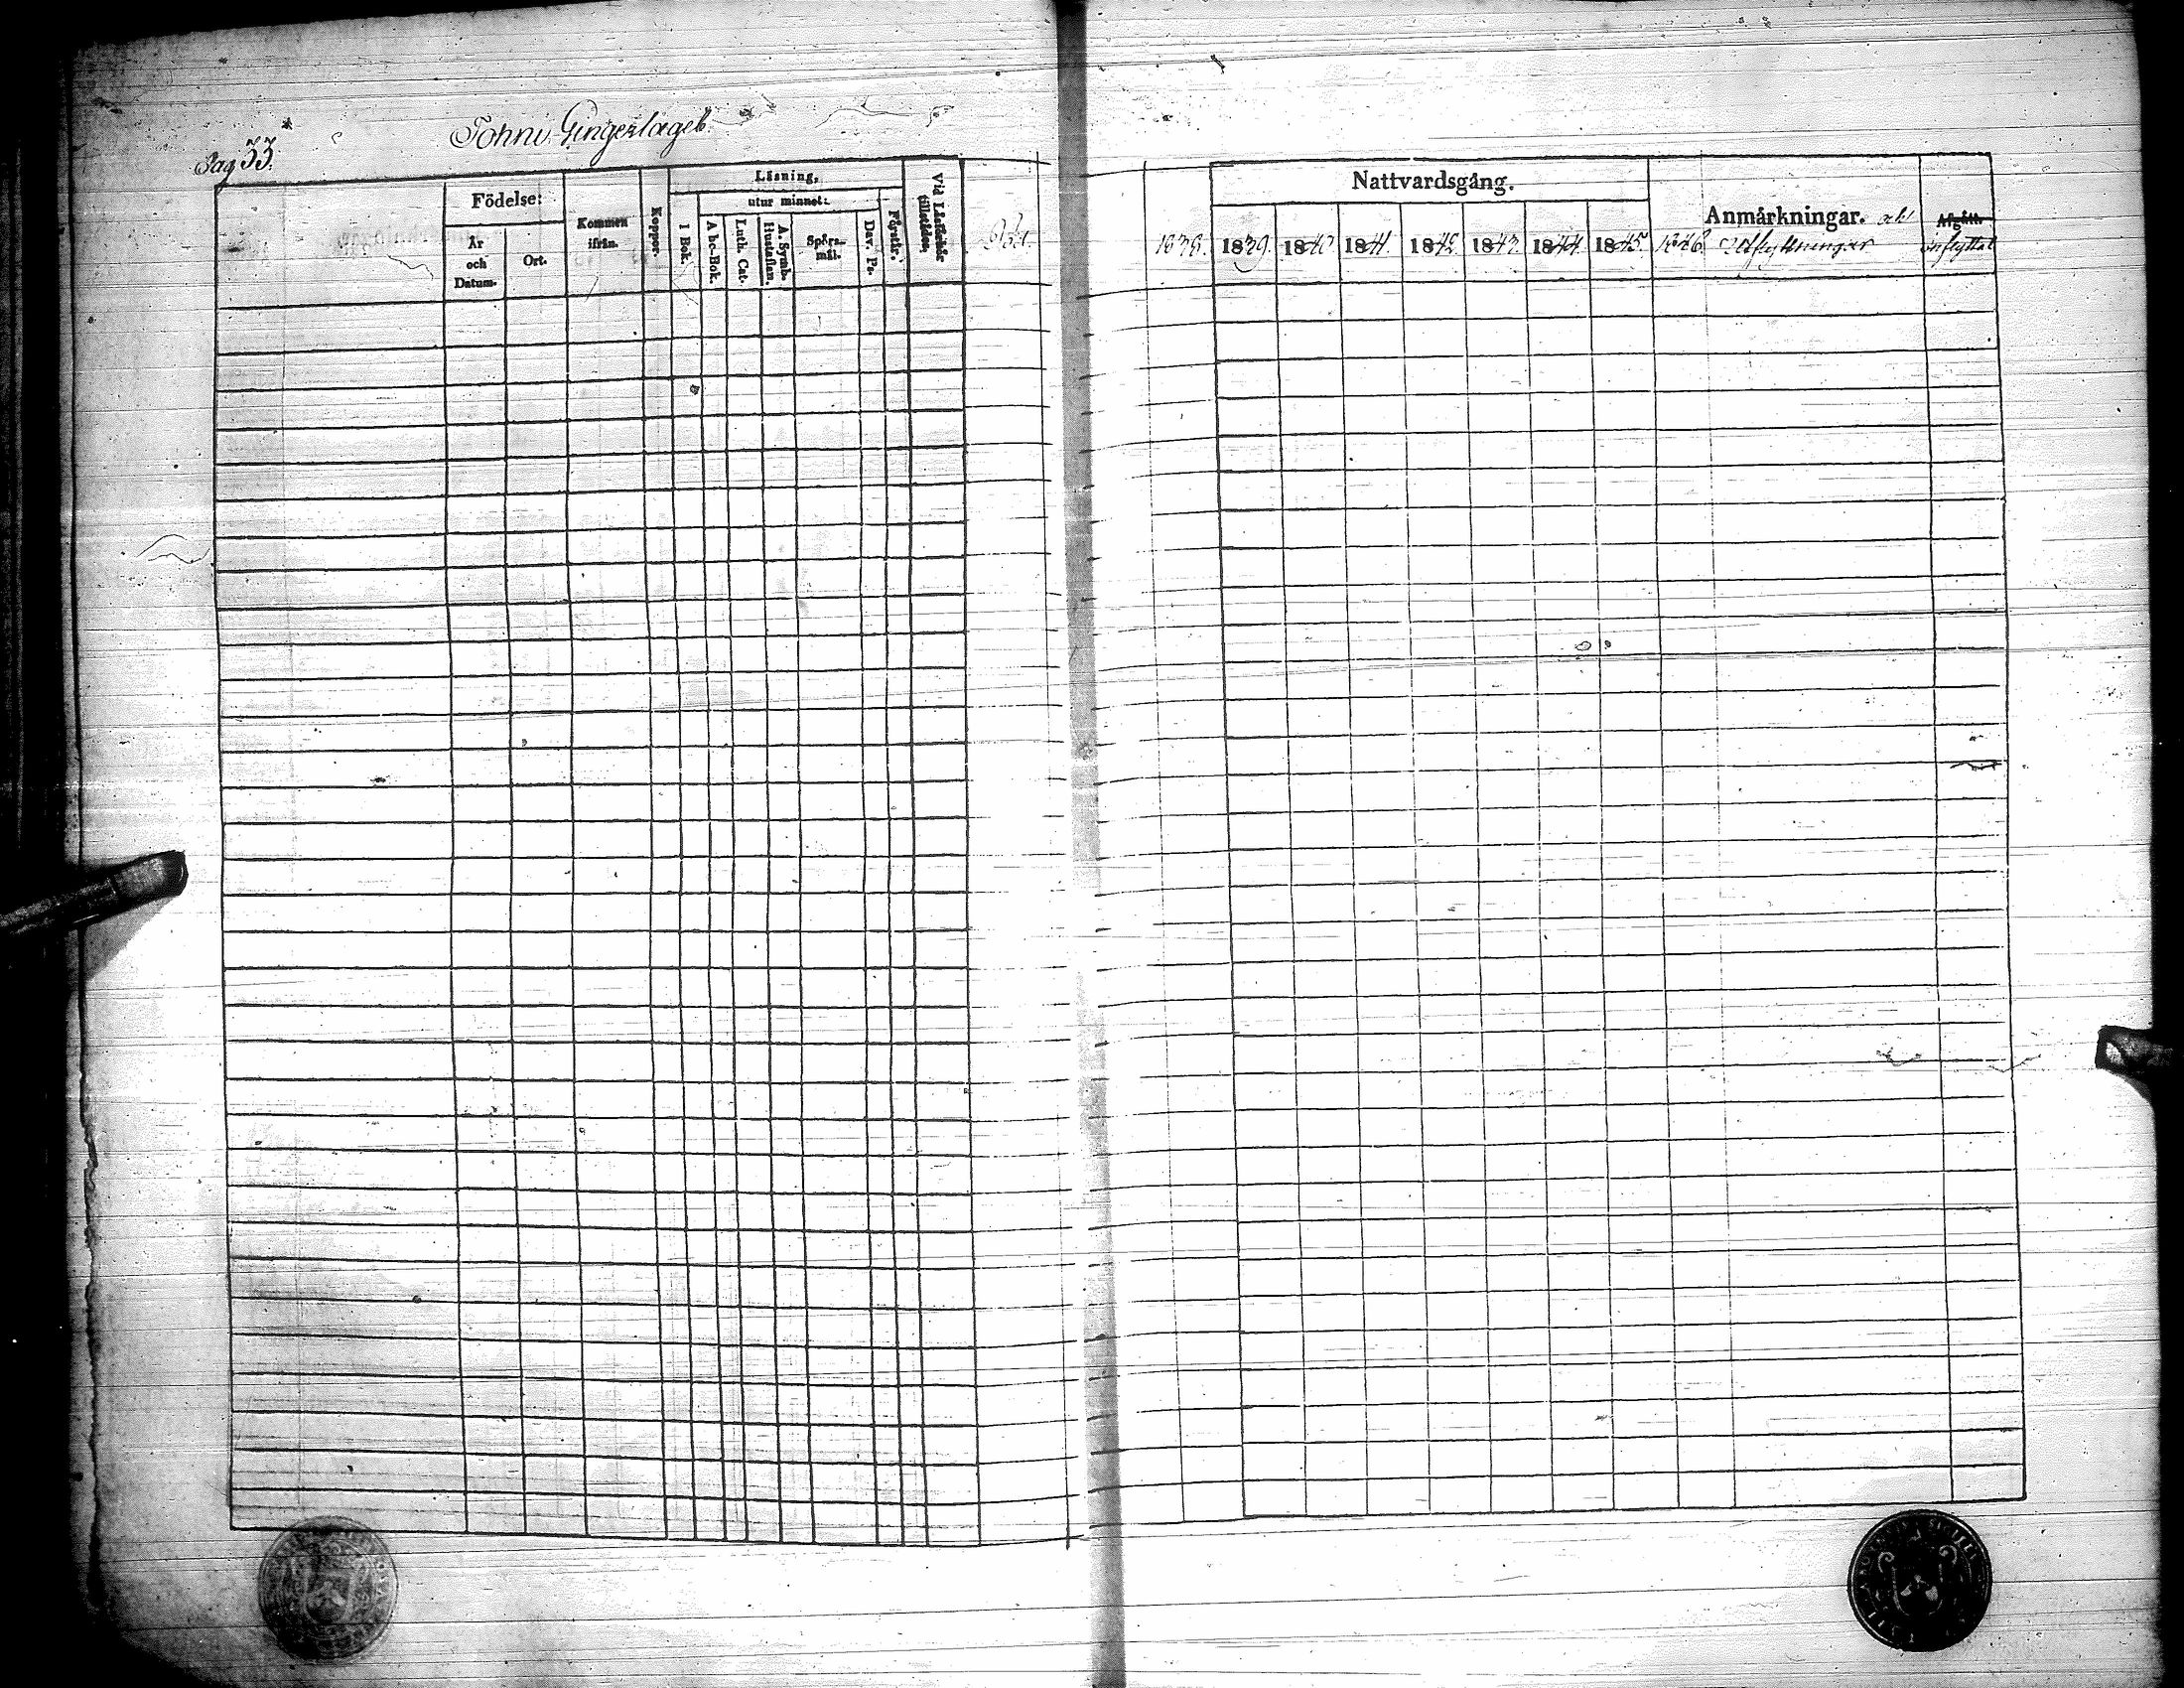 Pag 33.
Födelse:
År
och
Datum.
Ort.
Kommen
ifrån.
Koppor.
Läsning,
utur minnet:
I Bok.
A bc-Bok.
Luth. Cat.
A. Symb.
Hustaflan.
Spörs-
mål.
Dav. Ps.
Förstå.
Vid Läsförhör
tillstädes.
Nattvardsgång.
1838. 1839. 1840 1841. 1842. 1843. 1844. 1845. 1846.
Anmärkningar. och
Utflyttningar
Afgått.
Inflyttat